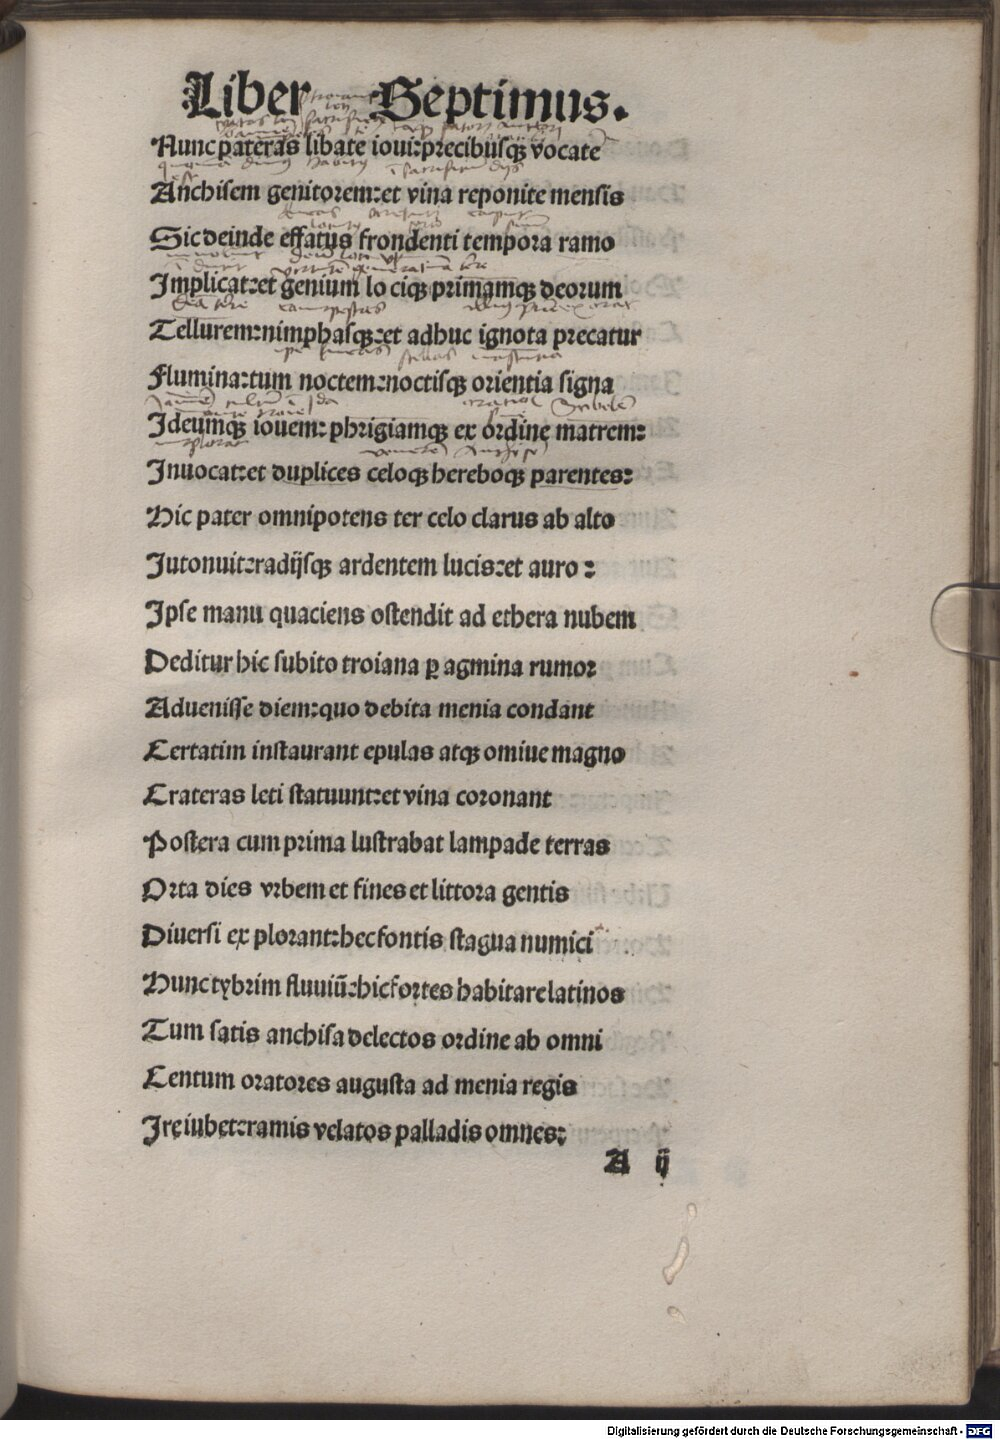 Liber Septimus.
Nunc pateras libate ioui:precibusqꝫ vocate
Anchisem genitorem:et vina reponite mensis
Sic deinde effatus frondenti tempora ramo
Implicat:et genium lo ciqꝫ primamqꝫ deorum
Tellurem:nimphasqꝫ:et adhuc ignota precatur
Flumina:tum noctem:noctisqꝫ orientia signa
Ideumqꝫ iouem: phrigiamqꝫ ex ordine matrem:
Inuocat:et duplices celoqꝫ hereboqꝫ parentes:
Hic pater omnipotens ter celo clarus ab alto
Iutonuit:radijsqꝫ ardentem lucis:et auro :
Ipse manu quaciens ostendit ad ethera nubem
Deditur hic subito troiana ꝑ agmina rumor
Aduenisse diem:quo debita menia condant
Certatim instaurant epulas atqꝫ omiue magno
Crateras leti statuunt:et vina coronant
Postera cum prima lustrabat lampade terras
Orta dies vrbem et fines et littora gentis
Diuersi ex plorant:hec fontis stagua numici
Hunc tybrim fluuiū:hic fortes habitare latinos
Tum satis anchisa delectos ordine ab omni
Centum oratores augusta ad menia regis
Ire iubet:ramis velatos palladis omnes:
A ij
Digitalisierung gefördert durch die Deutsche Forschungsgemeinschaft - DFG